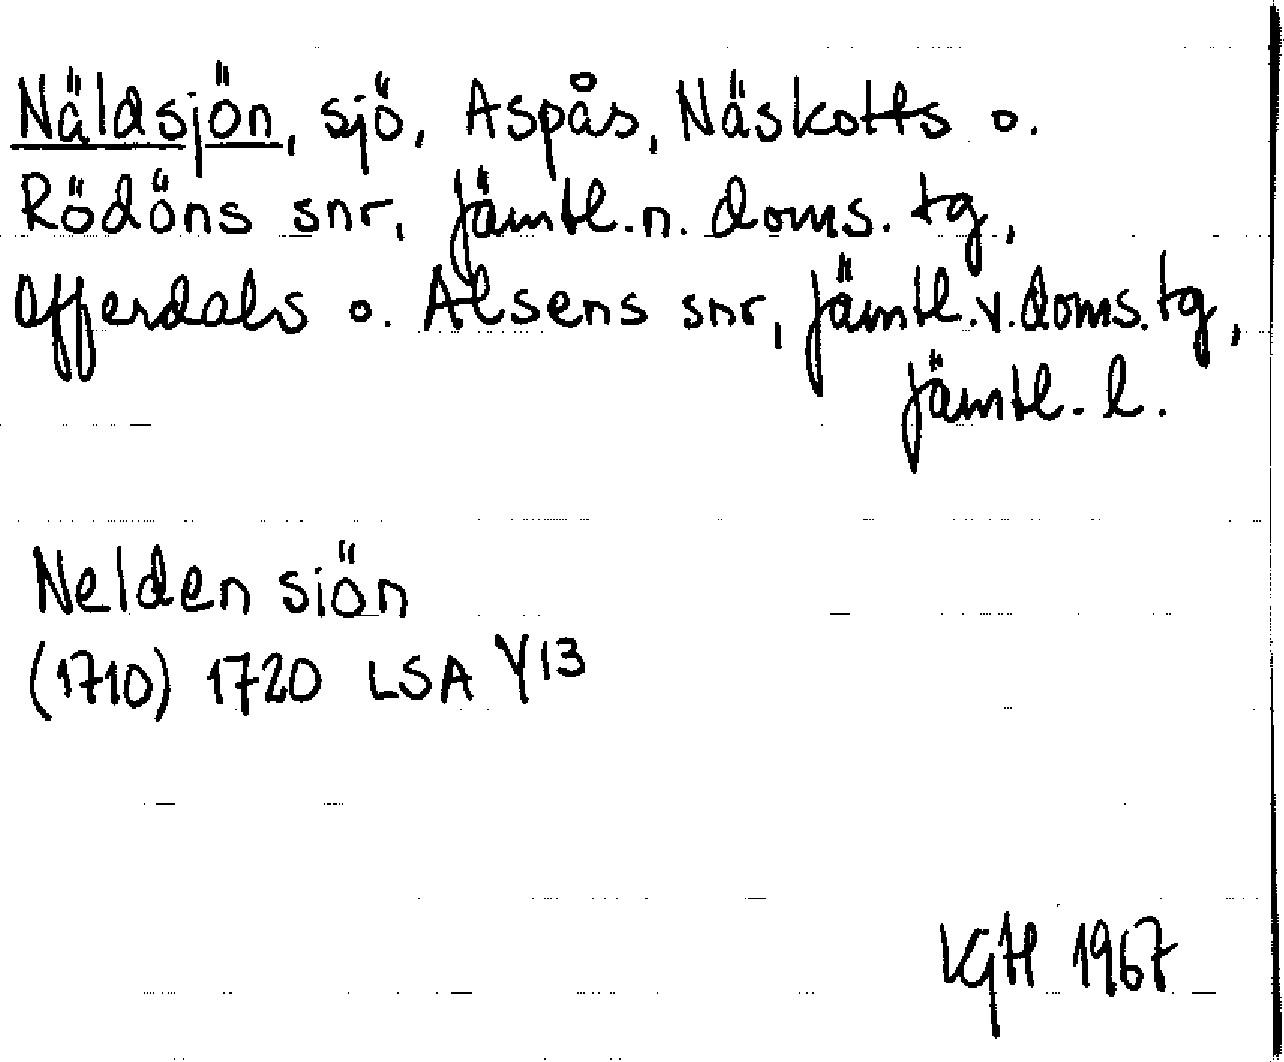 Näldsjön, sjö, Aspås, Näskotts o.
Rödöns snr, Jämtl.n. doms. tg,
Offerdals o. Alsens snr, Jämtl.v.doms.tg,
Jämtl. l.
Nelden siön
(1710) 1720 LSA Y13
VGH 1967